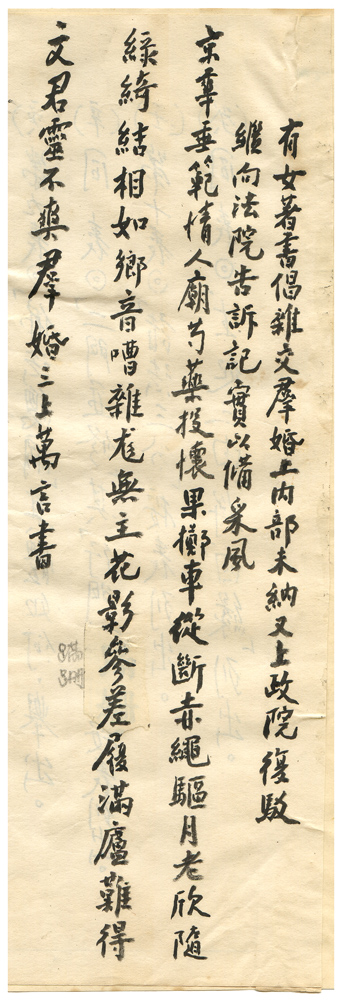 有女著書倡雜交羣婚上内部未納又上政院復駁
繼向法院告訴記實以備采風
京華垂範情人廟芍藥投懷果擲車從斷赤繩驅月老欣隨
綠綺結相如鄉音嘈雜尨無主花影參差屐滿廬難得
文君靈不爽羣婚三上萬言書